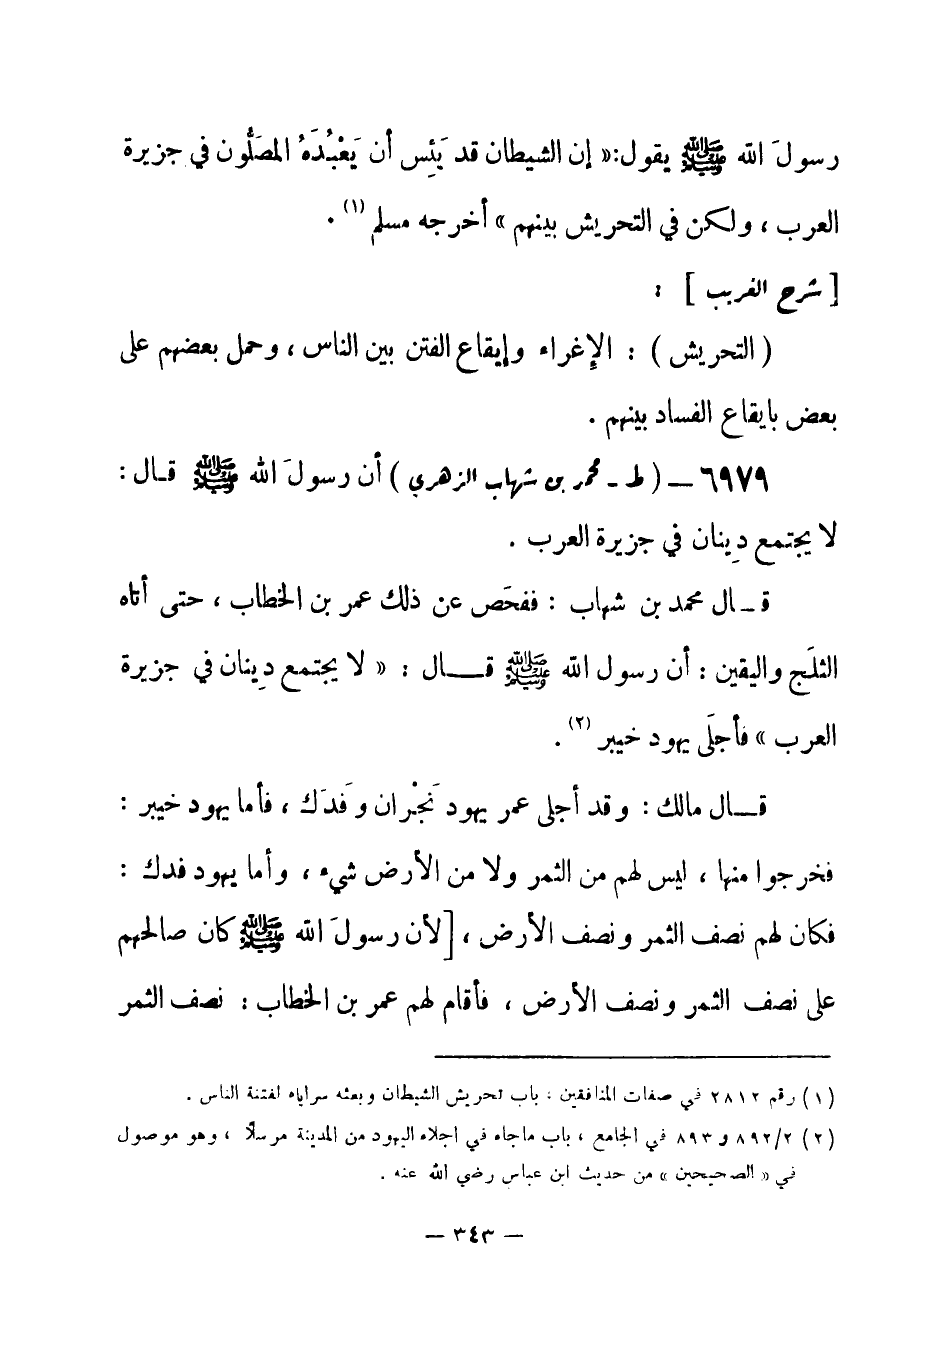 رسولَ الله ﷺ يقول:« إن الشيطان قد يَئِس أن يَعْبُدَهُ المصَلُّون في جزيرة
العرب ، ولكن في التحريش بينهم » أخرجه مسلم (١) .
[ شرح الغريب ] :
( التحريش ) : الإغراء وإيقاع الفتن بين الناس ، وحمل بعضهم على
بعض بايقاع الفساد بينهم .
٦٩٧٩ – ( ط - محمد بن شهاب الزهري ) أن رسولَ الله ﷺ قـال :
لا يجتمع دِينان في جزيرة العرب .
قـال محمد بن شهاب : ففحَص عن ذلك عمر بن الخطاب ، حتى أتاه
الثلَج واليقين : أن رسول الله ﷺ قــال : « لا يجتمع دِينان في جزيرة
العرب » فأجلَى يهود خيبر (٢) .
قــال مالك : وقد أجلى عمر يهود نَجْران وفَدَك ، فأما يهود خيبر :
فخرجوا منها ، ليس لهم من الثمر ولا من الأرض شيء ، وأما يهود فدك :
فكان لهم نصف الثمر ونصف الأرض ، [لأن رسولَ الله ﷺ كان صالحهم
على نصف الثمر ونصف الأرض ، فأقام لهم عمر بن الخطاب : نصف الثمر
(١) رقم ٢٨١٢ في صفات المنافقين ، باب تحريش الشيطان وبعثه سراياه لفتنة الناس .
(٢) ٨٩٢/٢ و ٨٩٣ في الجامع ، باب ماجاء في اجلاء اليهود من المدينة مرسلاً ، وهو موصول
في « الصحيحين » من حديث ابن عباس رضي الله عنه .
– ٣٤٣ –